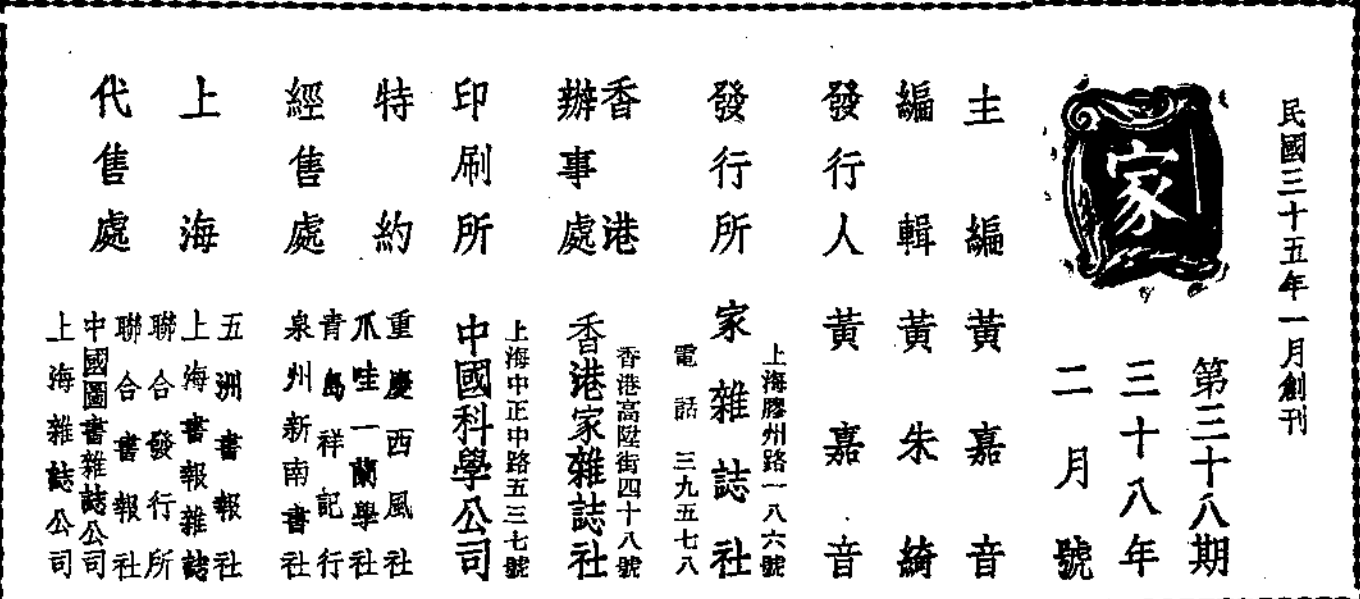 民國三十五年一月創刊
家
第三十八期
三十八年
二月號
主編 黃嘉音
編輯 黃朱綺
發行人 黃嘉音
發行所 家雜誌社
上海膠州路一八六號
電話 三九五七八
香港辦事處 香港家雜誌社
香港高陞街四十八號
印刷所 中國科學公司
上海中正中路五三七號
特約經售處
重慶西風社
爪哇一蘭學社
青島祥記行
泉州新南書社
上海代售處
五洲書報社
上海書報雜誌
聯合發行所
聯合書報社
中國圖書雜誌公司
上海雜誌公司